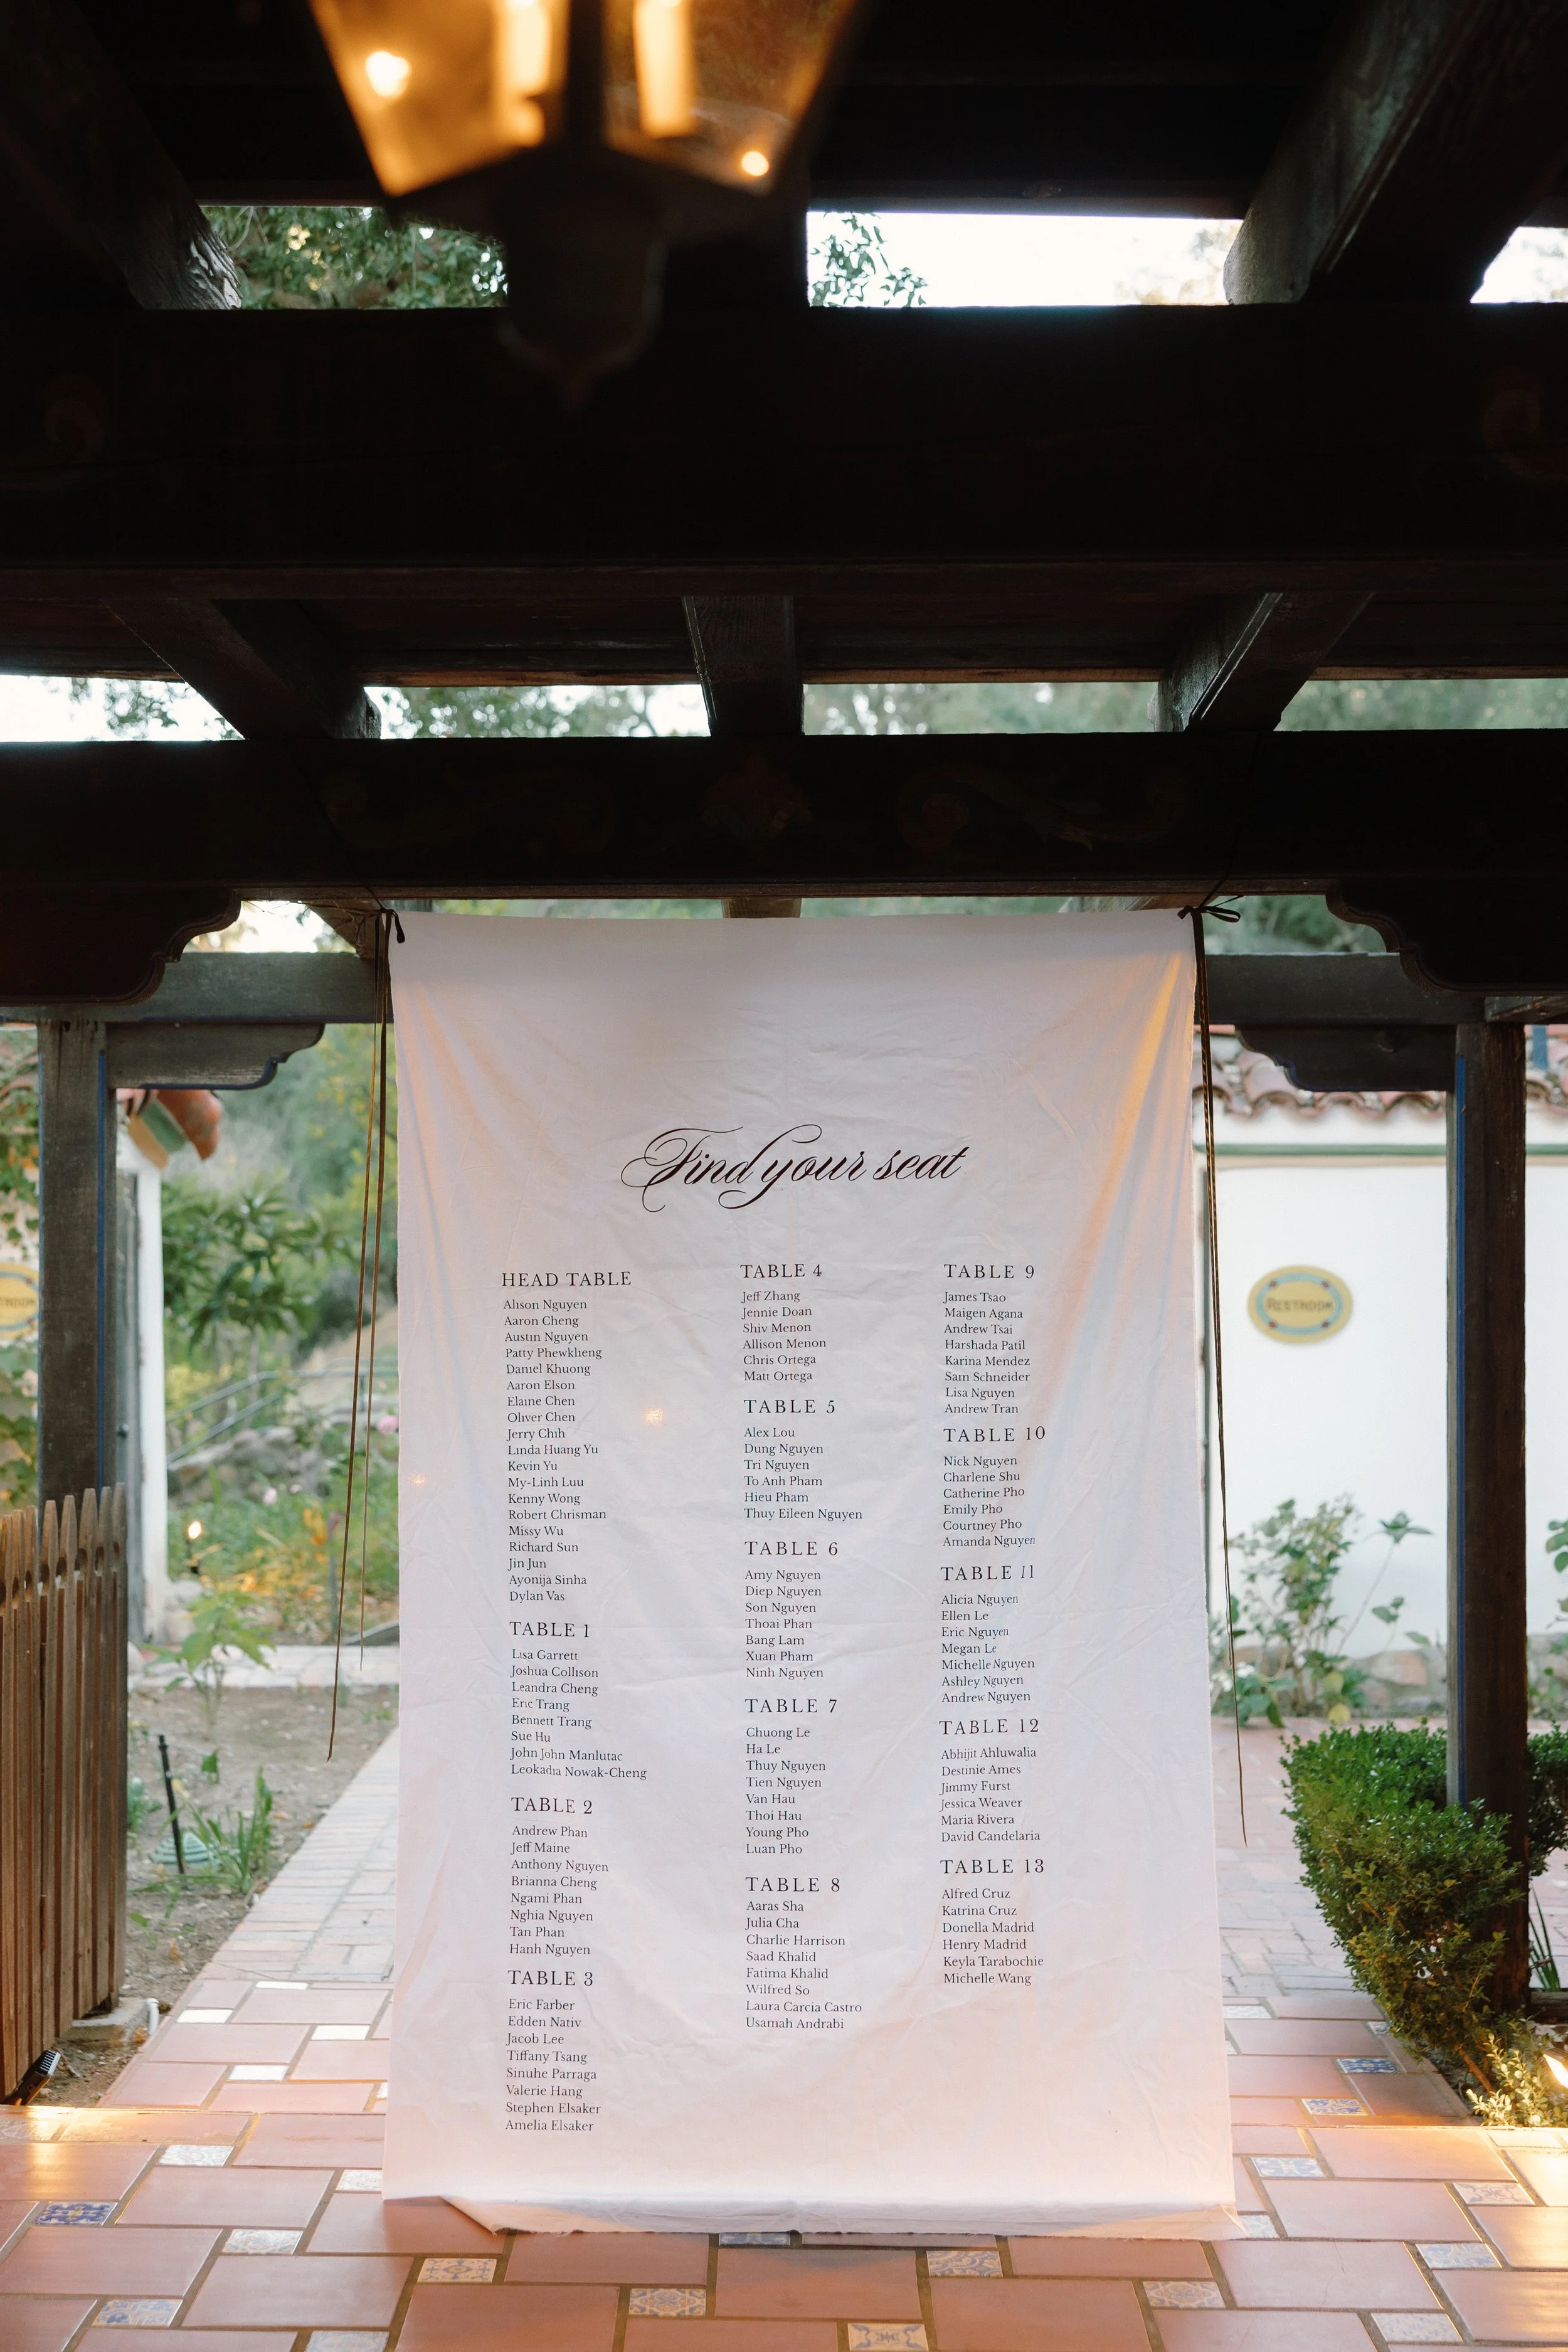 Find your seat
HEAD TABLE
Alison Nguyen
Aaron Cheng
Austin Nguyen
Patty Phewkheng
Daniel Khuong
Aaron Elson
Elaine Chen
Oliver Chen
Jerry Chih
Linda Huang Yu
Kevin Yu
My-Linh Luu
Kenny Wong
Robert Chrisman
Missy Wu
Richard Sun
Jin Jun
Ayonija Sinha
Dylan Vas
TABLE 1
Lisa Garrett
Joshua Collison
Leandra Cheng
Eric Trang
Bennett Trang
Sue Hu
John John Manlutac
Leokadia Nowak-Cheng
TABLE 2
Andrew Phan
Jeff Maine
Anthony Nguyen
Brianna Cheng
Ngami Phan
Nghia Nguyen
Tan Phan
Hanh Nguyen
TABLE 3
Eric Farber
Edden Nativ
Jacob Lee
Tiffany Tsang
Sinuhe Parraga
Valerie Hang
Stephen Elsaker
Amelia Elsaker
TABLE 4
Jeff Zhang
Jennie Doan
Shiv Menon
Allison Menon
Chris Ortega
Matt Ortega
TABLE 5
Alex Lou
Dung Nguyen
Tri Nguyen
To Anh Pham
Hieu Pham
Thuy Eileen Nguyen
TABLE 6
Amy Nguyen
Diep Nguyen
Son Nguyen
Thoai Phan
Bang Lam
Xuan Pham
Ninh Nguyen
TABLE 7
Chuong Le
Ha Le
Thuy Nguyen
Tien Nguyen
Van Hau
Thoi Hau
Young Pho
Luan Pho
TABLE 8
Aaras Sha
Julia Cha
Charlie Harrison
Saad Khalid
Fatima Khalid
Wilfred So
Laura Carcia Castro
Usamah Andrabi
TABLE 9
James Tsao
Maigen Agana
Andrew Tsai
Harshada Patil
Karina Mendez
Sam Schneider
Lisa Nguyen
Andrew Tran
TABLE 10
Nick Nguyen
Charlene Shu
Catherine Pho
Emily Pho
Courtney Pho
Amanda Nguyen
TABLE 11
Alicia Nguyen
Ellen Le
Eric Nguyen
Megan Le
Michelle Nguyen
Ashley Nguyen
Andrew Nguyen
TABLE 12
Abhijit Ahluwalia
Destinie Ames
Jimmy Furst
Jessica Weaver
Maria Rivera
David Candelaria
TABLE 13
Alfred Cruz
Katrina Cruz
Donella Madrid
Henry Madrid
Keyla Tarabochie
Michelle Wang
RESTROOM